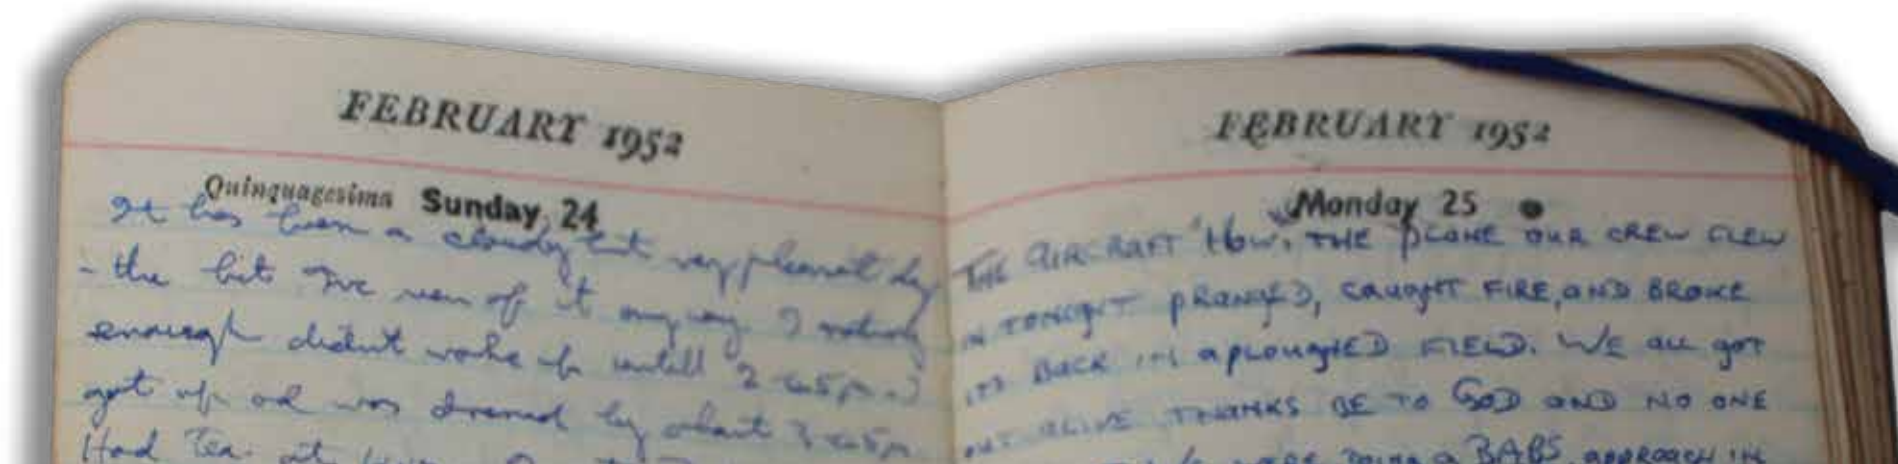 FEBRUARY 1952
Quinquagesima Sunday 24
It has been a cloudy but very pleasant day
- the bit I've seen of it anyway. I
enough didn't wake up untill 2.45 p.m. I
got up and was dressed by about 3.45 pm
Had Tea. at
FEBRUARY 1952
Monday 25
THE AIRCRAFT "HOW", THE PLANE OUR CREW FLEW
IN TONIGHT PRANGED, CAUGHT FIRE, AND BROKE
ITS BACK IN A PLOUGHED FIELD. WE ALL GOT
OUT ALIVE THANKS BE TO GOD AND NO ONE
WERE DOING A BABS APPROACH IN